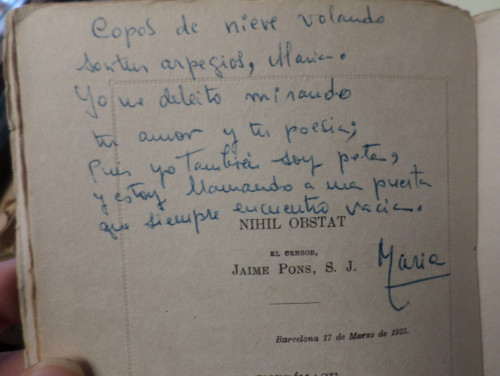 Copos de nieve volando
son tus arpegios, Maria.
Yo me deleito mirando
tu amor y tu poesia;
Pues yo también soy poeta,
y estoy llamando a una puerta
que siempre encuentro vacia.
NIHIL OBSTAT
EL CENSOR,
JAIME PONS, S. J.
Maria
Barcelona 17 de Marzo de